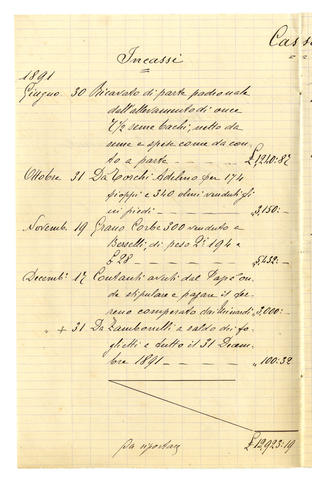 Cass
Incassi
1891
Giugno 30 Ricavato di parte padronale
dell'allevamento di once
7 1/2 seme bachi, netto da
seme e spese come da con-
to a parte _ _ _ _ £ 1240:87
Ottobre 31 Da Torchi Adelmo per 174
pioppi e 340 olmi vendutigli
in piedi _ _ _ _ „ 3,150:_
Novemb. 19 Grano Corbe 300 venduto a
Berselli, di peso Q.li 194 a
£ 28 _ _ _ _ „ 5432:_
Decemb. 17 Contanti avuti dal Papà on-
de stipulare e pagare il ter-
reno comperato dai „ 3,000:_
+ 31 Da Zamborelli a saldo di fo-
ghetti a tutto il 31 Decem-
bre 1891 _ _ _ _ „ 100:32
Da riportare £ 12923:19